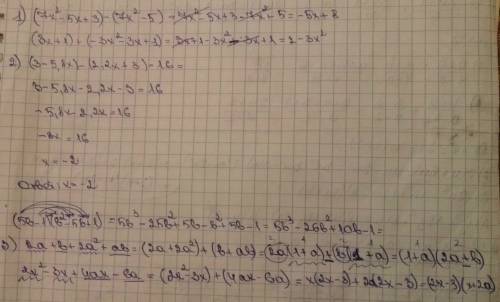 1) (7x²-5x+3)-(7x²-5) = 7x²-5x+3-7x²+5=-5x+8
(3x+1)+(-3x²-3x+1)=3x+1-3x²-3x+1=2-3x²
2) (3-5,8x)-(2,2x+3)=16=
3-5,8x-2,2x-3=16
-5,8x-2,2x=16
-8x=16
x=-2
Ответ: x=-2
(5b-1)(b²-5b+1)=5b³-25b²+5b-b²+5b-1=5b³-26b²+10b-1=
3) 2a+b+2a²+ab=(2a+2a²)+(b+ab)=2a(1+a)+b(1+a)=(1+a)(2a+b)
2x²-3x+4ax-6a=(2x²-3x)+(4ax-6a)=x(2x-3)+2a(2x-3)=(2x-3)(x+2a)